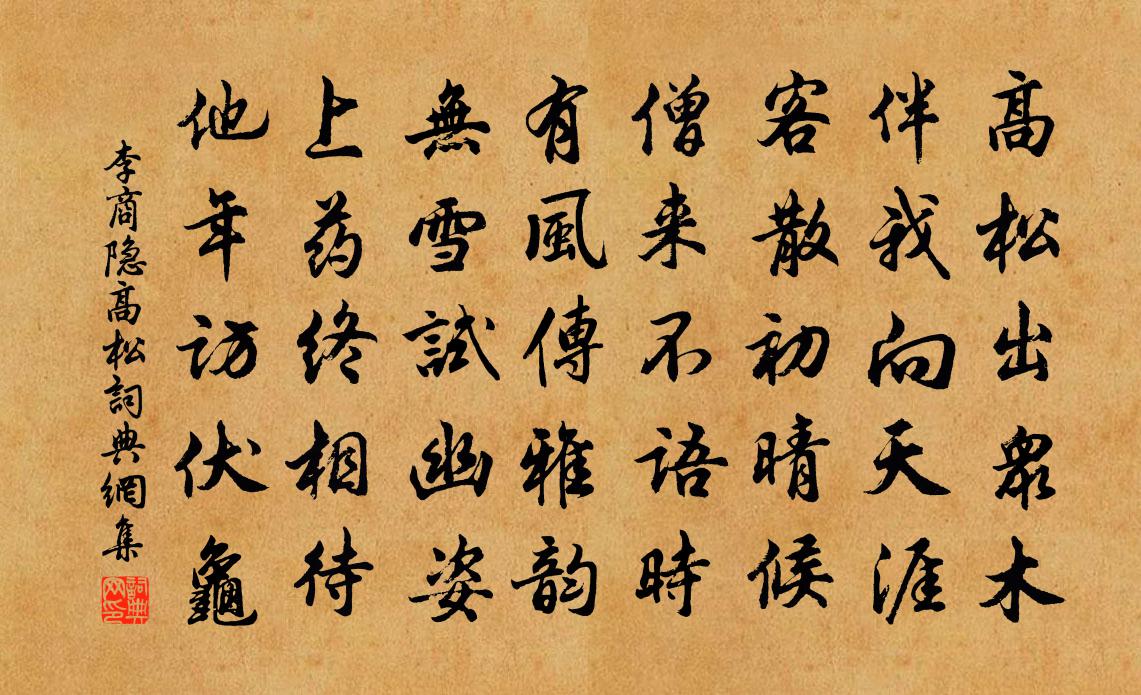 高松出衆木
伴我向天涯
客散初晴候
僧来不語時
有風傳雅韵
無雪試幽姿
上药终相待
他年訪伏龜
李商隐高松詞典網集
詞典网印